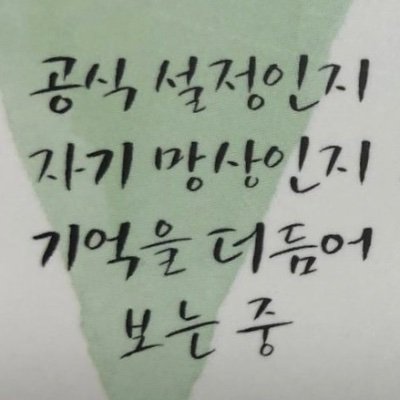 공식 설정인지
자기 망상인지
기억을 더듬어
보는 중